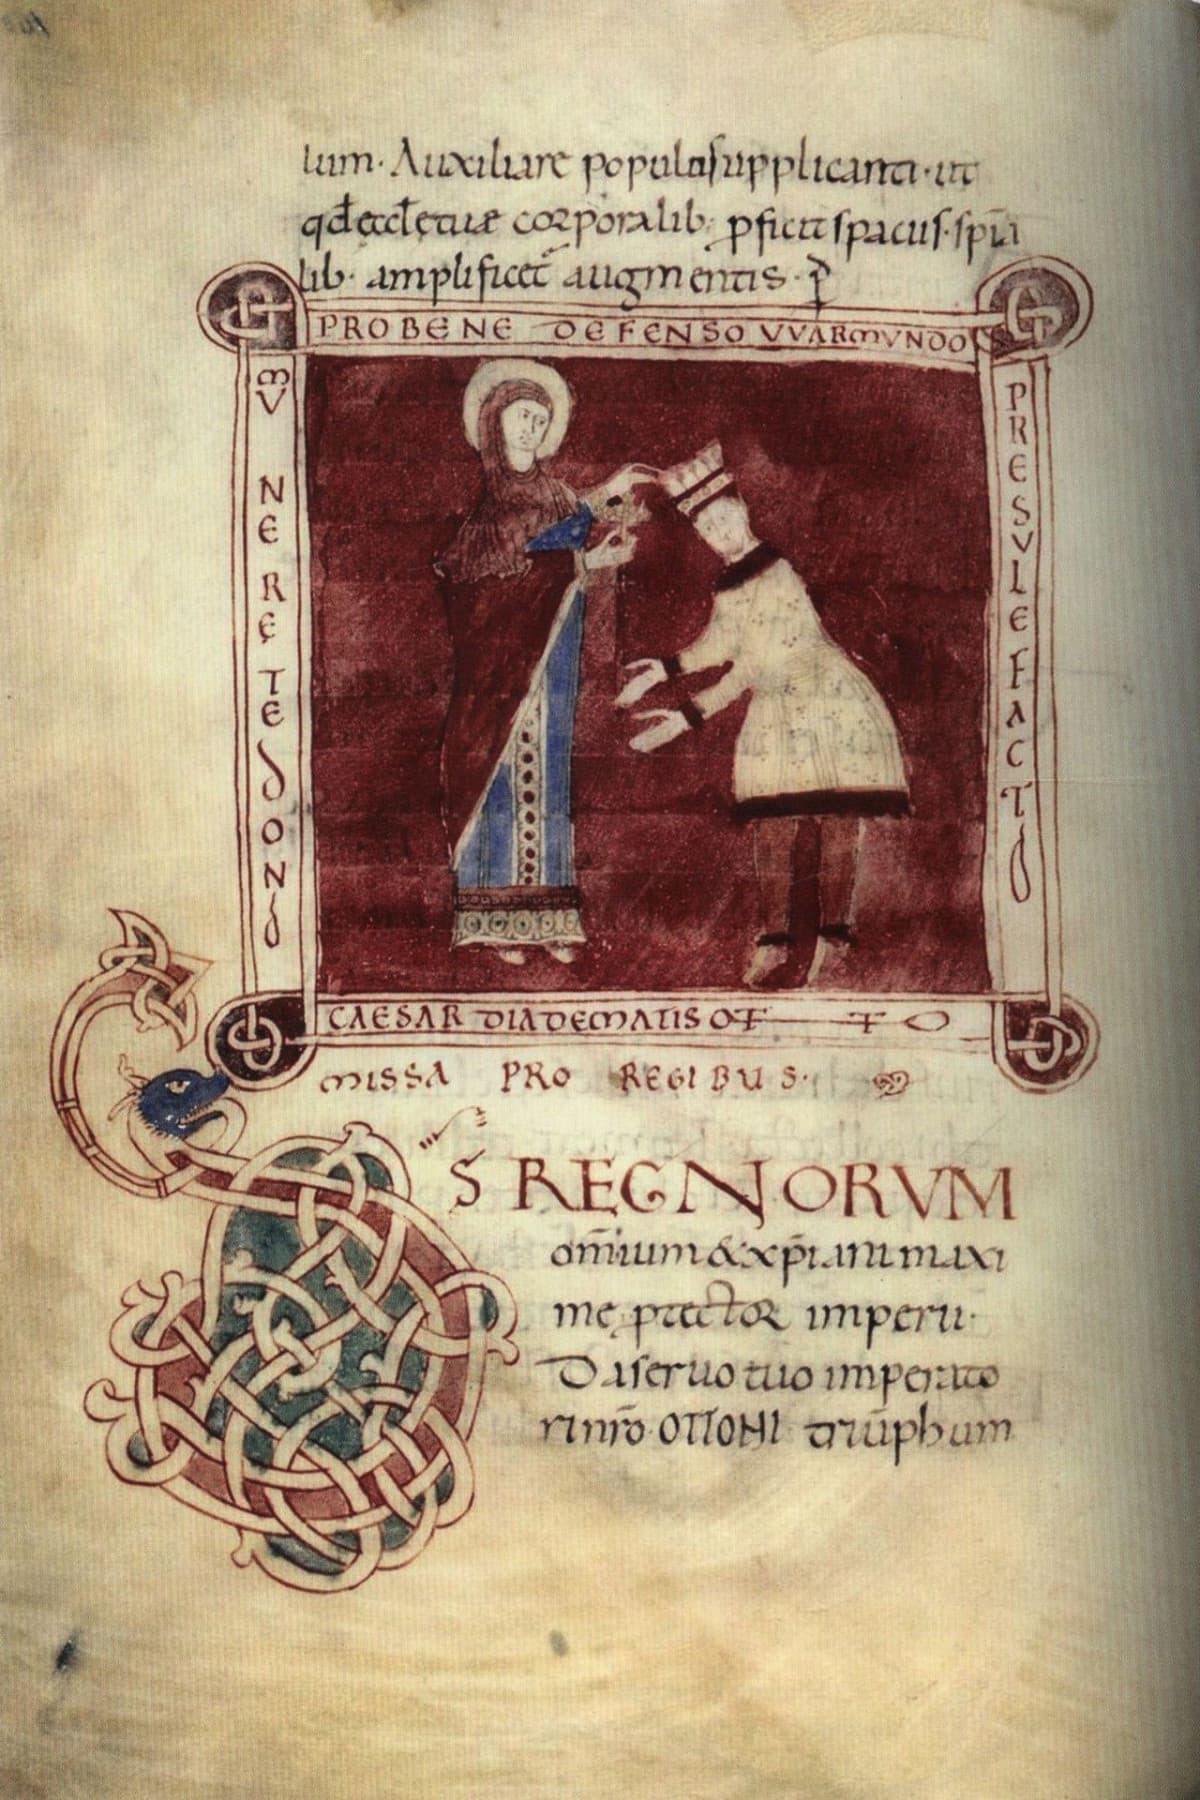 lum. Auxiliare populo supplicanti. ut
qđ ęccłę tuæ corporalib; pficit spacus. spīa
lib. amplificet augmentis. p̄
PRO BENE DEFENSO VVARMVNDO
PRESVLE FACTO
MVNERE TE DONO
CAESAR DIADEMATIS OTTO
MISSA PRO REGIBUS.
DS REGNORVM
om̄ium & xp̄iani maxi
me ptector imperii.
Da seruo tuo imperato
ri nr̄o OTTONI triūphum